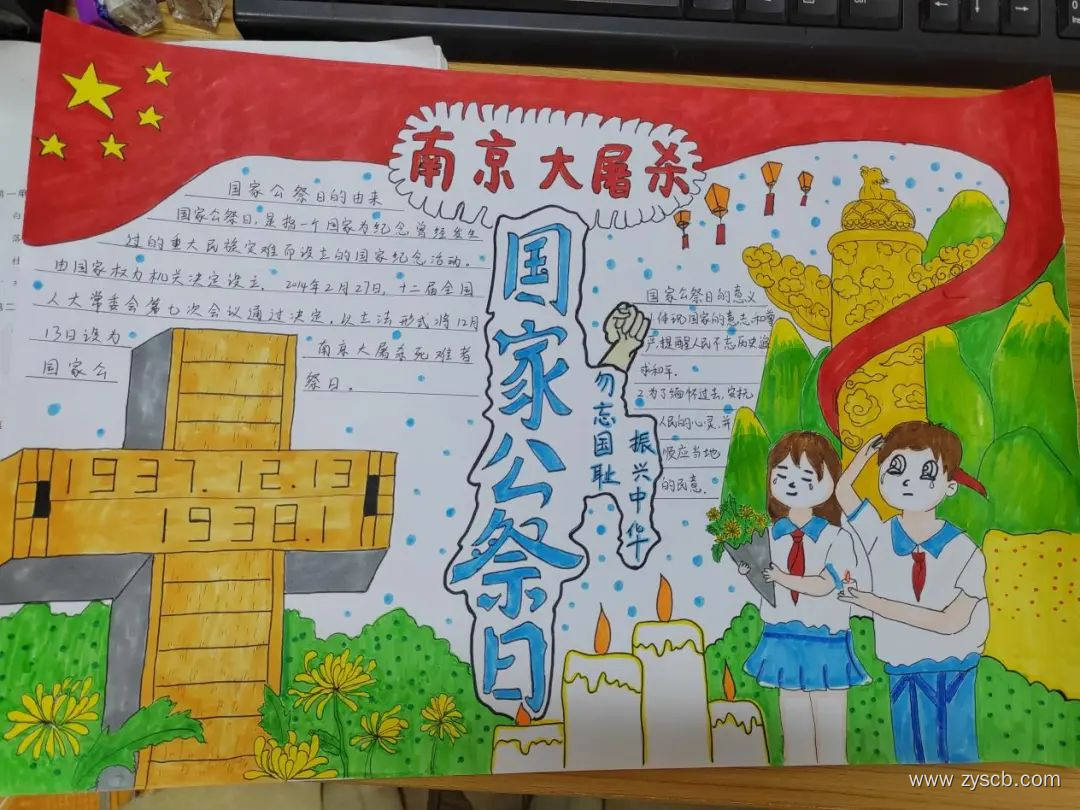 南京大屠杀
国家公祭日
勿忘国耻
振兴中华
国家公祭日的由来
国家公祭日,是指一个国家为纪念曾经发生
过的重大民族灾难而设立的国家纪念活动。
由国家权力机关决定设立。2014年2月27日,十二届全国
人大常委会第七次会议通过决定,以立法形式将12月
13日设为 南京大屠杀死难者
国家公 祭日。
国家公祭日的意义
1.体现国家的意志和尊
严,提醒人民不忘历史追
求和平。
2.为了缅怀过去,安抚
人民的心灵,并
顺应当地
的民意。
1937.12.13
1938.1
www.zyscb.com